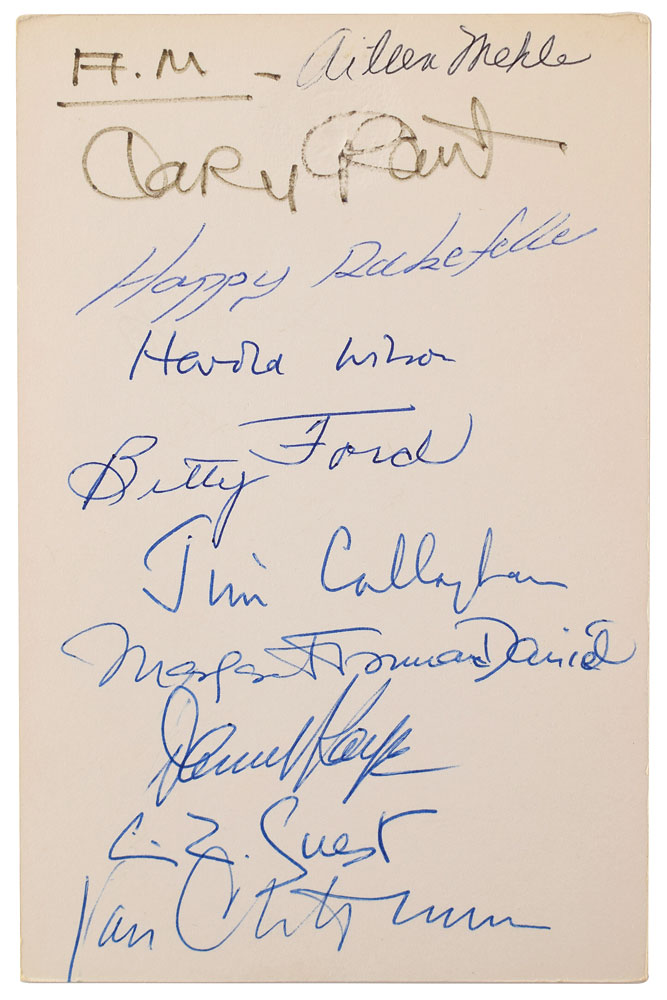 A.M - Aileen Mehle
Cary Grant
Happy Rockefeller
Harold Wilson
Betty Ford
Jim Callaghan
Margaret Truman Daniel
Danny Kaye
C. Z. Guest
Van